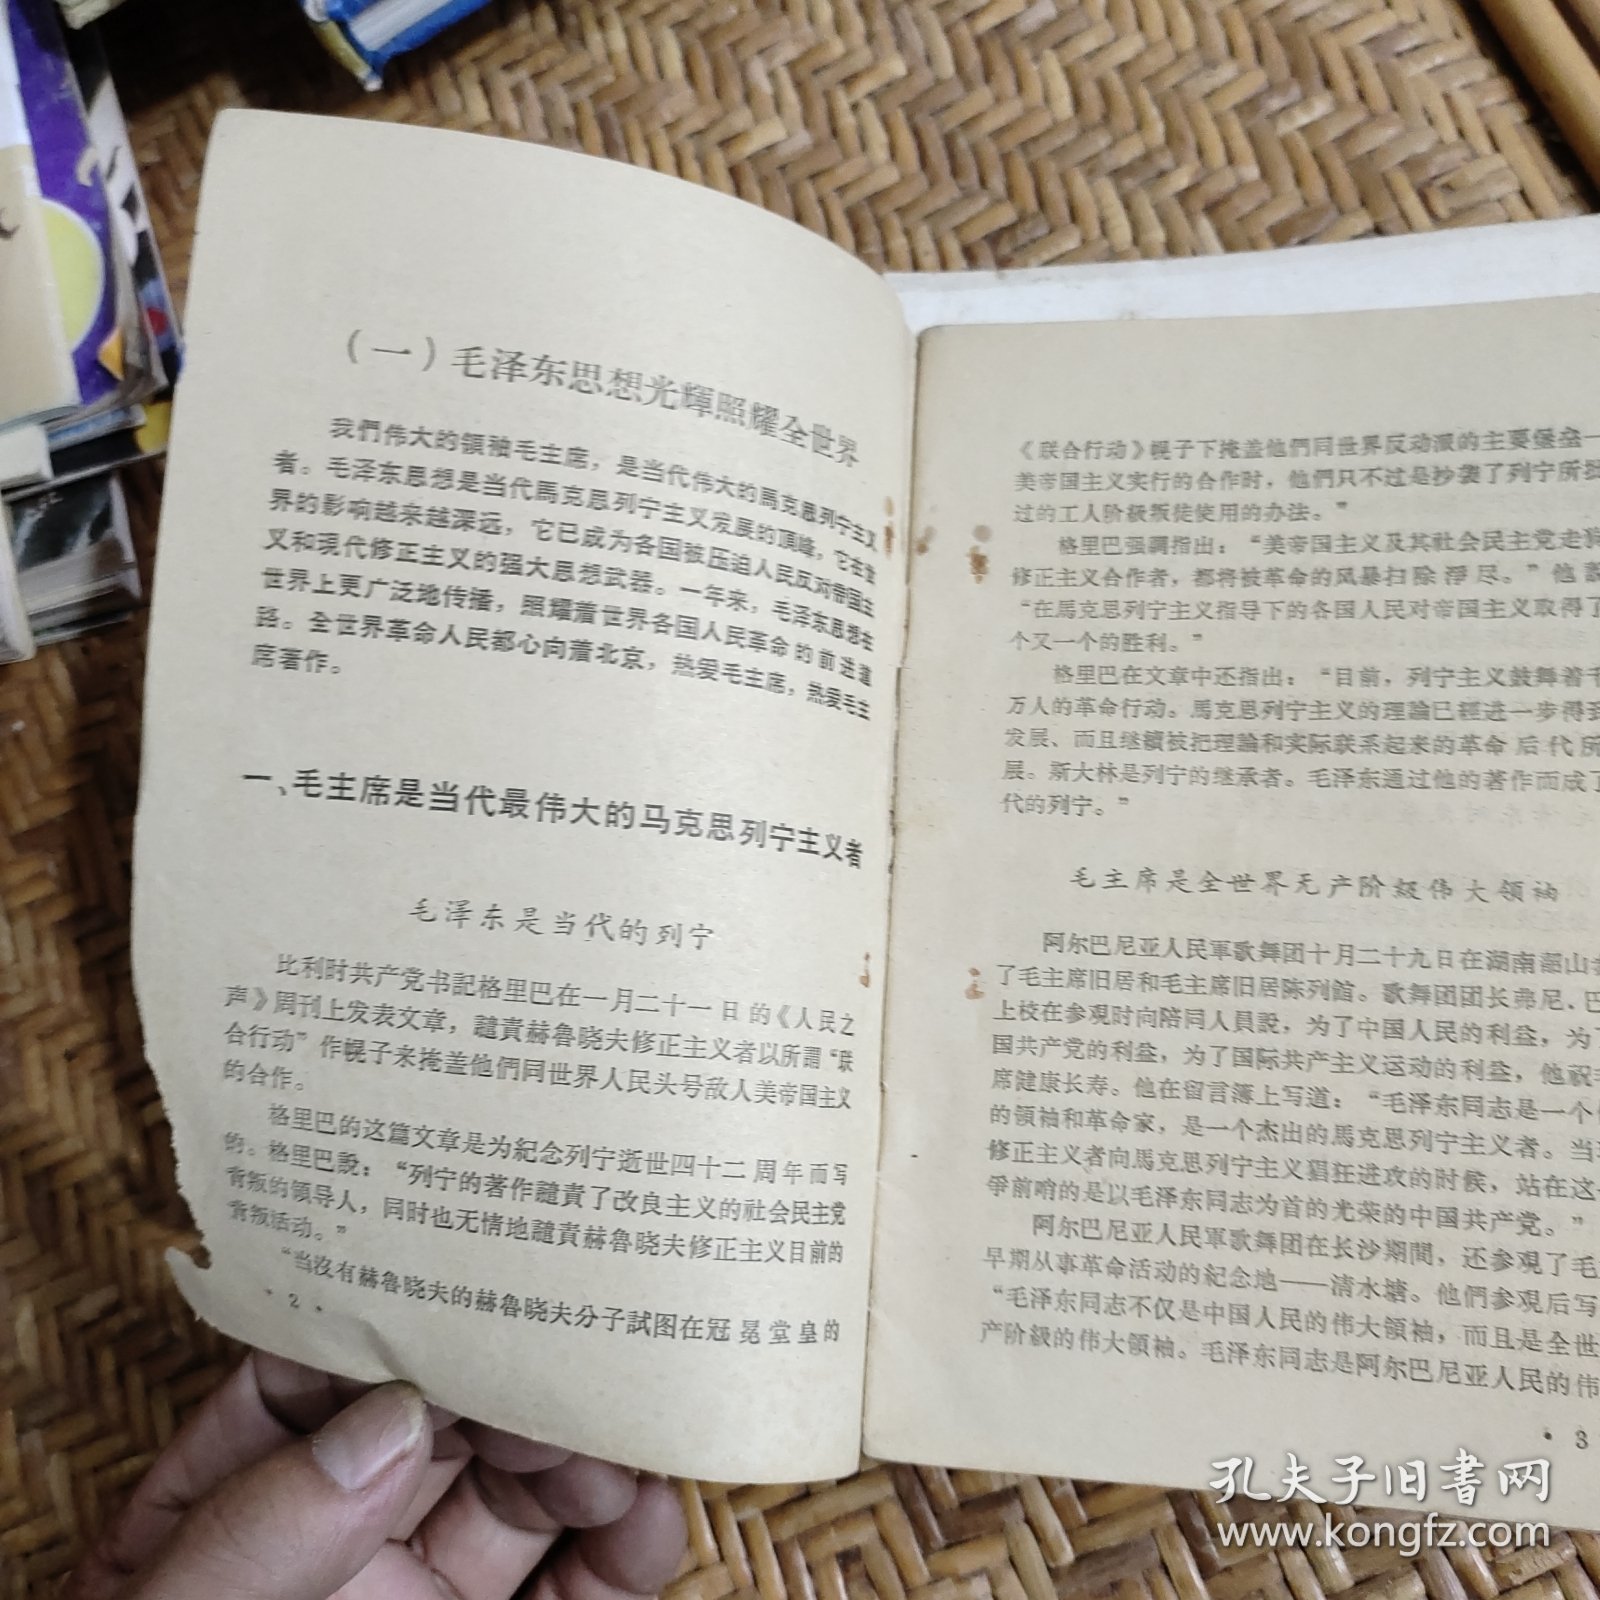 （一）毛泽东思想光輝照耀全世界
我們伟大的領袖毛主席，是当代伟大的馬克思列宁主义
者。毛泽东思想是当代馬克思列宁主义发展的頂峰，它在世
界的影响越来越深远，它已成为各国被压迫人民反对帝国主
义和現代修正主义的强大思想武器。一年来，毛泽东思想在
世界上更广泛地传播，照耀着世界各国人民革命的前进道
路。全世界革命人民都心向着北京，热爱毛主席，热爱毛主
席著作。
一、毛主席是当代最伟大的马克思列宁主义者
毛泽东是当代的列宁
比利时共产党书記格里巴在一月二十一日的《人民之
声》周刊上发表文章，譴責赫魯晓夫修正主义者以所謂“联
合行动”作幌子来掩盖他們同世界人民头号敌人美帝国主义
的合作。
格里巴的这篇文章是为紀念列宁逝世四十二周年而写
的。格里巴說：“列宁的著作譴責了改良主义的社会民主党
背叛的领导人，同时也无情地譴責赫魯晓夫修正主义目前的
背叛活动。”
“当沒有赫魯晓夫的赫魯晓夫分子試图在冠冕堂皇的
· 2 ·
《联合行动》幌子下掩盖他們同世界反动派的主要堡垒—
美帝国主义实行的合作时，他們只不过是抄襲了列宁所
过的工人阶級叛徒使用的办法。”
格里巴强調指出：“美帝国主义及其社会民主党走狗
修正主义合作者，都将被革命的风暴扫除淨尽。”他說
“在馬克思列宁主义指导下的各国人民对帝国主义取得了
个又一个的胜利。”
格里巴在文章中还指出：“目前，列宁主义鼓舞着千
万人的革命行动。馬克思列宁主义的理論已經进一步得到
发展、而且继續被把理論和实际联系起来的革命后代所
展。斯大林是列宁的继承者。毛泽东通过他的著作而成了
代的列宁。”
毛主席是全世界无产阶级伟大领袖
阿尔巴尼亚人民軍歌舞团十月二十九日在湖南韶山
了毛主席旧居和毛主席旧居陈列館。歌舞团团长弗尼．巴
上校在参观时向陪同人員說，为了中国人民的利益，为了
国共产党的利益，为了国际共产主义运动的利益，他祝
席健康长寿。他在留言簿上写道：“毛泽东同志是一个
的領袖和革命家，是一个杰出的馬克思列宁主义者。当
修正主义者向馬克思列宁主义猖狂进攻的时候，站在这
爭前哨的是以毛泽东同志为首的光荣的中国共产党。”
阿尔巴尼亚人民軍歌舞团在长沙期間，还参观了毛
早期从事革命活动的紀念地——清水塘。他們参观后写
“毛泽东同志不仅是中国人民的伟大領袖，而且是全世
产阶級的伟大領袖。毛泽东同志是阿尔巴尼亚人民的伟
· 3
孔夫子旧书网
www.kongfz.com